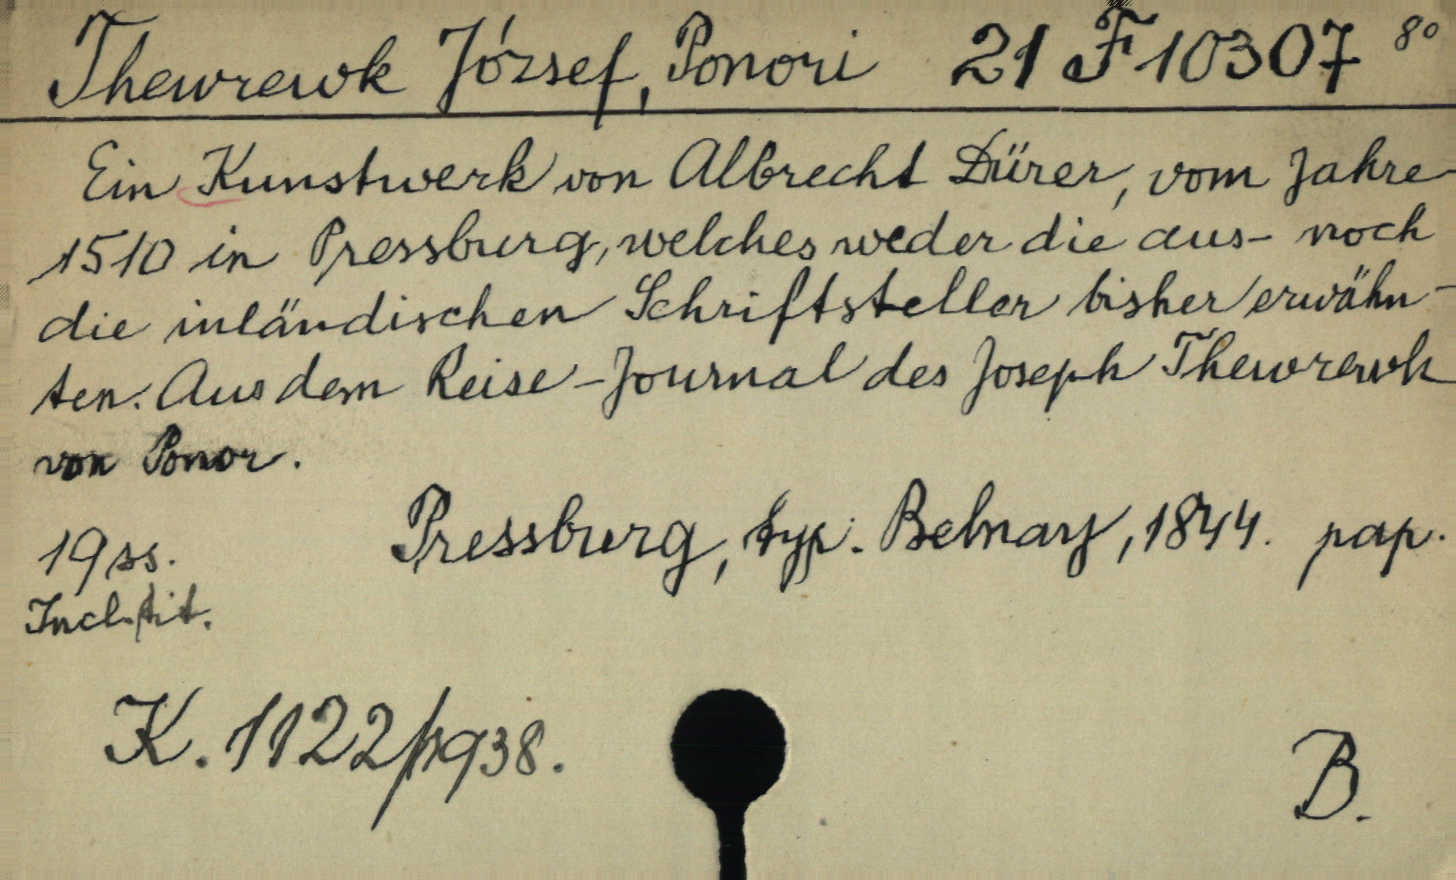 Thewrewk József, Ponori 21 F 10307 8°
Ein Kunstwerk von Albrecht Dürer, vom Jahre
1510 in Pressburg, welches weder die aus- noch
die inländischen Schriftsteller bisher erwähn-
ten. Aus dem Reise-Journal des Joseph Thewrewk
von Ponor.
Pressburg, typ. Belnay, 1844. pap.
19 ss.
Incl. tit.
K. 1122/1938.
B.